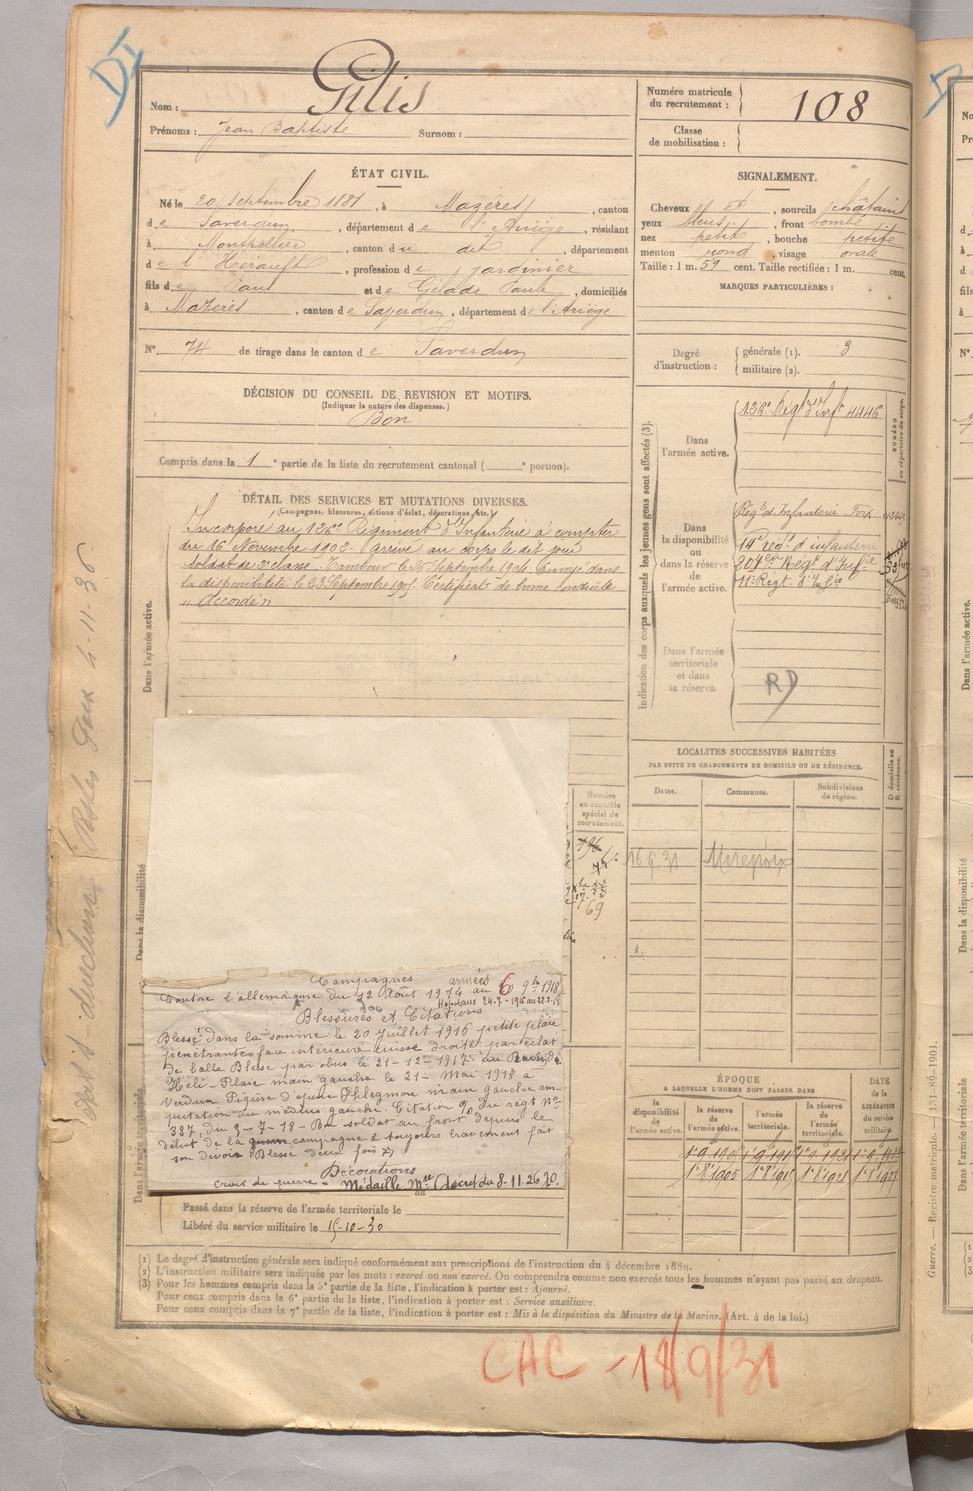 DI
Nom : Gilis
Prénoms : Jean Baptiste Surnom :
Numéro matricule du recrutement : 108
Classe de mobilisation :
ÉTAT CIVIL.
Né le 20 Septembre 1881, à Mazères, canton
de Saverdun, département de l'Ariège, résidant
à Montpellier, canton du dit, département
de l'Hérault, profession de jardinier
fils de Paul et de Gélade Paule, domiciliés
à Mazères, canton de Saverdun, département de l'Ariège
N° 74 de tirage dans le canton de Saverdun
SIGNALEMENT.
Cheveux et, sourcils châtains
yeux bleus, front bombé
nez petit, bouche petite
menton rond, visage ovale
Taille : 1 m. 59 cent. Taille rectifiée : 1 m. cent.
MARQUES PARTICULIÈRES :
Degré d'instruction : générale (1). 3
militaire (2).
DÉCISION DU CONSEIL DE REVISION ET MOTIFS.
(Indiquer la nature des dispenses.)
Bon
Compris dans la 1e partie de la liste du recrutement cantonal ( e portion).
DÉTAIL DES SERVICES ET MUTATIONS DIVERSES.
(Campagnes, blessures, actions d'éclat, décorations, etc.)
Dans l'armée active.
Incorporé au 126e Régiment d'Infanterie à compter
du 16 Novembre 1902. Arrivé au corps le dit jour
soldat de 2e classe. Tambour le 25 Septembre 1904. Envoyé dans
la disponibilité le 23 Septembre 1905. Certificat de bonne conduite
"Accordé"
Indication des corps auxquels les jeunes gens sont affectés (3).
Dans l'armée active.
126e Régt d'Infie 4446
Dans la disponibilité ou dans la réserve de l'armée active.
Régt d'Infanterie Foix
14e régt d'infanterie
207eme Régt d'Infie
11e Regt d'Infie
Dans l'armée territoriale et dans sa réserve.
RD
LOCALITES SUCCESSIVES HABITÉES
PAR SUITE DE CHANGEMENTS DE DOMICILE OU DE RÉSIDENCE.
Dates. Communes. Subdivisions de région. D domicile ou R résidence.
16 9.31 Mirepoix
Numéro au contrôle spécial de recrutement.
196
69
Dans la disponibilité
Campagnes
Contre l'allemagne du 12 Août 1914 au 6 9bre 1918
armées
Blessures et Citations
Blessé dans la somme le 20 Juillet 1916 petite plaie
pénétrantes face intérieure cuisse droite par éclat
de balle Blesse par obus le 21-12-1917 au
Plaie main gauche le 21 Mai 1918 à
Verdun Piqure d'épine Phlegmon main gauche am-
putation du médius gauche. Citation O/ du régt No
337, du 9-7-18 - Bon soldat au front depuis le
début de la guerre campagne a toujours bravement fait
son devoir Blessé deux fois
Décorations
Croix de guerre - Médaille Mre (Décret du 8.11.26 J.O.
ÉPOQUE
A LAQUELLE L'HOMME DOIT PASSER DANS
la disponibilité de l'armée active. la réserve de l'armée active. l'armée territoriale. la réserve de l'armée territoriale.
DATE de la LIBÉRATION du service militaire.
Passé dans la réserve de l'armée territoriale le
Libéré du service militaire le 15-10-30
(1) Le degré d'instruction générale sera indiqué conformément aux prescriptions de l'instruction du 4 décembre 1889.
(2) L'instruction militaire sera indiquée par les mots : exercé ou non exercé. On comprendra comme non exercés tous les hommes n'ayant pas passé au drapeau.
(3) Pour les hommes compris dans la 5e partie de la liste, l'indication à porter est : Ajourné.
Pour ceux compris dans la 6e partie de la liste, l'indication à porter est : Service auxiliaire.
Pour ceux compris dans la 7e partie de la liste, l'indication à porter est : Mis à la disposition du Ministre de la Marine. (Art. 4 de la loi.)
CAC - 18/9/31
Guerre. — Registre matricule. — 131-89-1901.